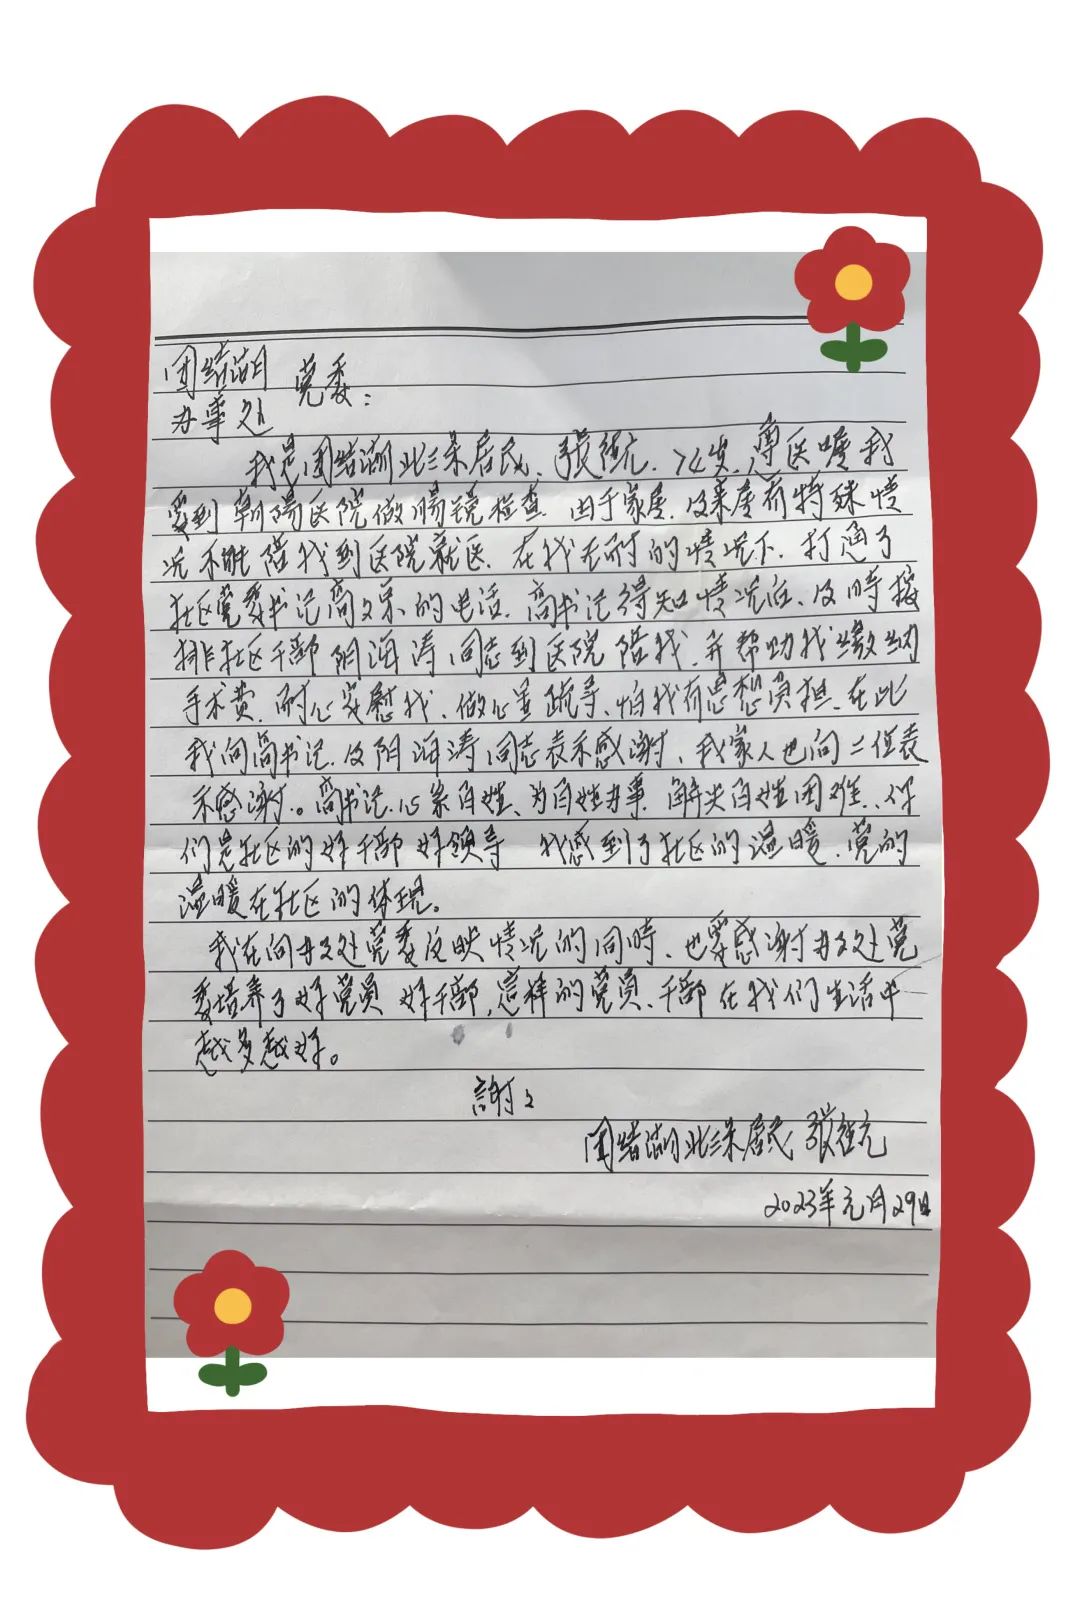 团结湖
办事处 党委：
我是团结湖北三条居民、张继元、74岁、医嘱我
要到朝阳医院做肠镜检查、由于家庭、及亲属有特殊情
况不能陪我到医院就医、在我无耐的情况下、打通了
社区党委书记高文东的电话、高书记得知情况后、及時按
排社区干部阴海涛同志到医院陪我、并帮助我缴纳
手术费、耐心安慰我、做心里疏导、怕我有思想负担、在此
我向高书记、及阴海涛同志表示感谢、我家人也向二位表
示感谢。高书记、心系百姓、为百姓办事、解决百姓困难、你
们是社区的好干部 好领导 我感到了社区的温暖、党的
温暖在社区的体现。
我在向办处党委反映情况的同時、也要感谢办处党
委培养了好党员 好干部、这样的党员、干部在我们生活中
越多越好。
謝々
团结湖北三条居民 张继元
2023年元月29日